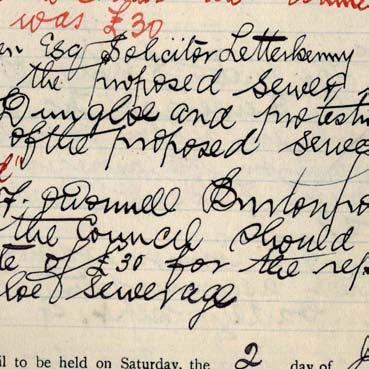 was £30
en Esq Solicitor Letterkenny
the proposed sewer
Dungloe and protest
of the proposed sewe
d"
F. O'Donnell Burtonpo
the Council should
te of £30 for the rep
loe sewerage
il to be held on Saturday, the 2 day of J